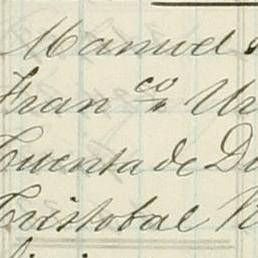 Manuel
Fran co Ur
Cuenta de Du
Cristobal R